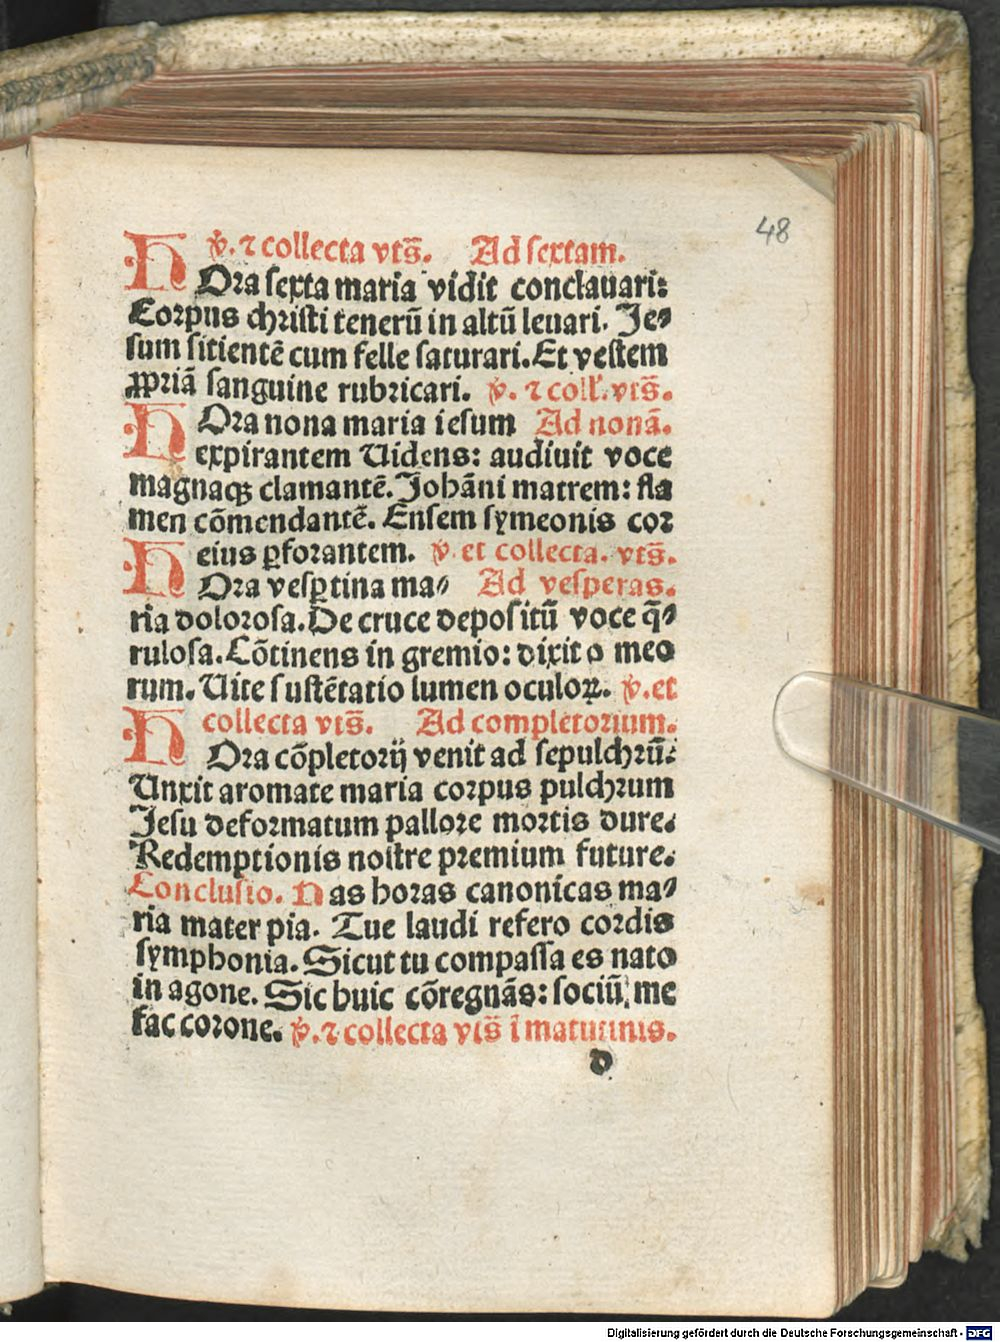 48
℣. ⁊ collecta vts̄. Ad sextam.
HOra sexta maria vidit conclauari:
Corpus christi tenerū in altū leuari. Je⸗
sum sitientē cum felle saturari. Et vestem
ꝓpriā sanguine rubricari. ℣. ⁊ coll'. vts̄.
HOra nona maria iesum Ad nonā.
expirantem Uidens: audiuit voce
magnaqꝫ clamantē. Johāni matrem: fla
men cōmendantē. Ensem symeonis cor
eius ꝑforantem. ℣. et collecta. vts̄.
HOra vesꝑtina ma⸗ Ad vesperas.
ria dolorosa. De cruce depositū voce q̄⸗
rulosa. Cōtinens in gremio: dixit o meo
rum. Uite sustētatio lumen oculoꝝ. ℣. et
collecta vts̄. Ad completorium.
HOra cōpletorij venit ad sepulchrū:
Unxit aromate maria corpus pulchrum
Jesu deformatum pallore mortis dure.
Redemptionis nostre premium future.
Conclusio. Has horas canonicas ma⸗
ria mater pia. Tue laudi refero cordis
symphonia. Sicut tu compassa es nato
in agone. Sic huic cōregnās: sociū me
fac corone. ℣. ⁊ collecta vts̄ ī matutinis.
d
Digitalisierung gefördert durch die Deutsche Forschungsgemeinschaft - DFG